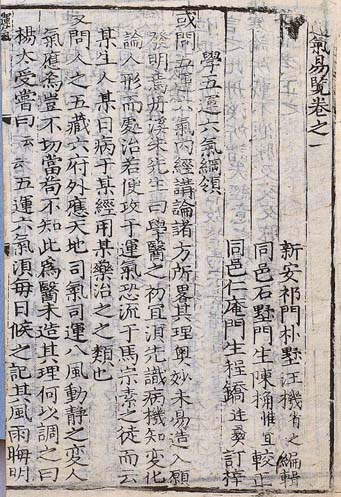 氣易覽卷之一
新安祁門朴墅汪機省之編輯
同邑石墅門生陳桷惟宜較正
同邑仁庵門生程鐈廷彝訂梓
學五運六氣綱領
或問五運六氣內經講論諸方所畧其理奧妙未易造入願
發明焉丹溪朱先生曰學醫之初宜湏先識病機知變化
論人形而處治若便攻于運氣恐流于馬宗素之徒而云
某生人某日病于某經用某藥治之之類也
又問人之五藏六府外應天地司氣司運八風動靜之变人
氣應焉豈不切當苟不知此爲醫未造其理何以調之曰
楊太受嘗曰云云五運六氣湏每日候之記其風雨晦明